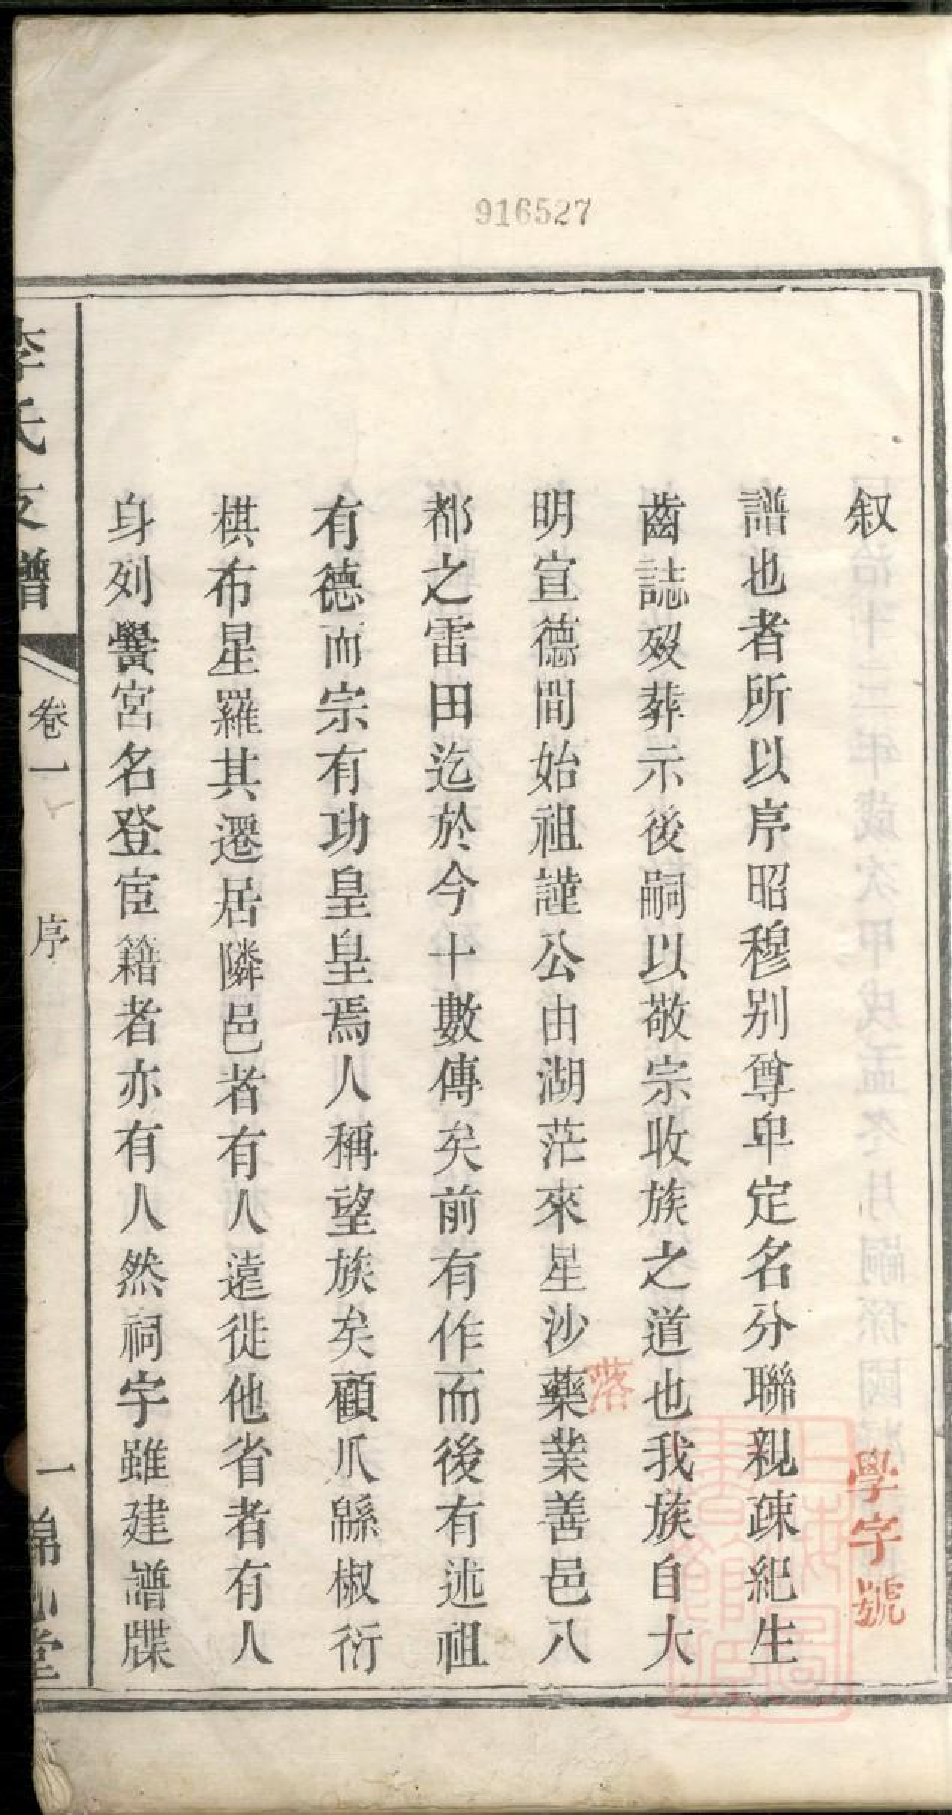 916527
叙
學字號
譜也者所以序昭穆别尊卑定名分聯親疎紀生
齒誌歿葬示後嗣以敬宗收族之道也我族自大
落
明宣德間始祖謹公由湖茫來星沙藥業善邑八
都之雷田迄於今十數傳矣前有作而後有述祖
有德而宗有功皇皇焉人稱望族矣顧瓜緜椒衍
棋布星羅其遷居隣邑者有人遠徙他省者有人
身列黌宮名登宦籍者亦有人然祠宇雖建譜牒
李氏支譜
卷一
序
一
堂